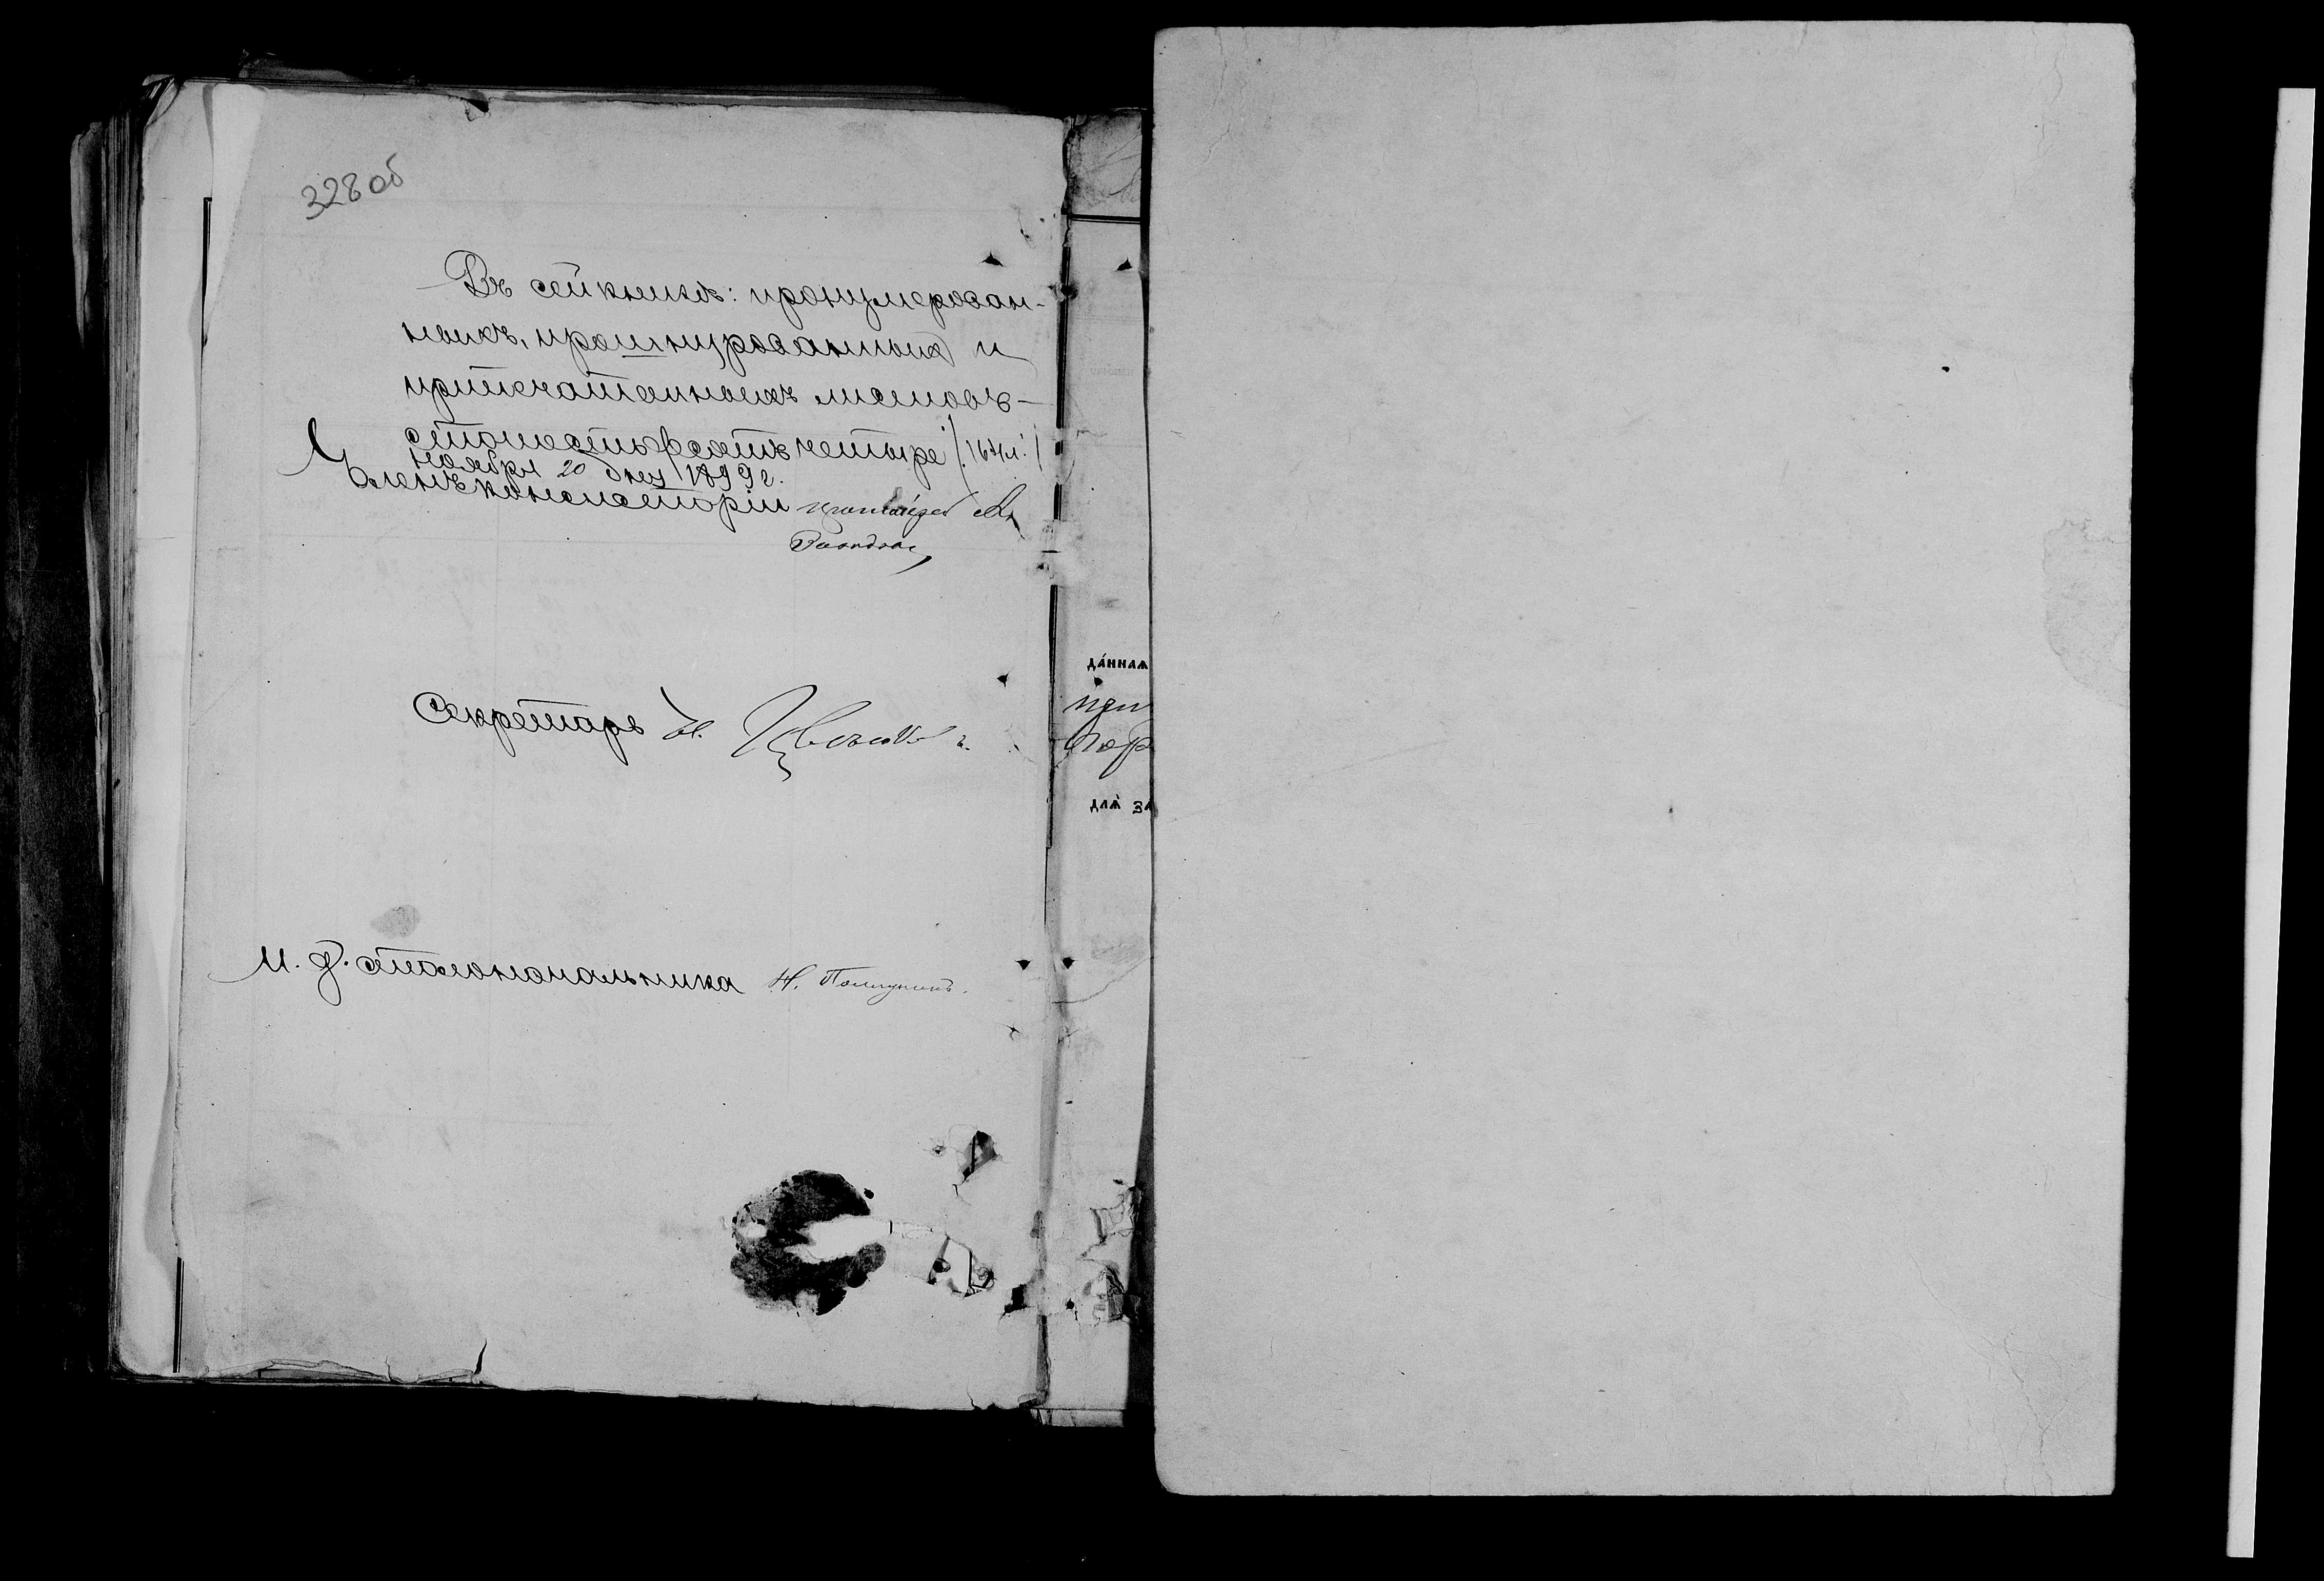 328 об
Въ сей книгѣ: пронумерован-
ныхъ, прошнурованныхъ и
припечатанныхъ листовъ —
сто шестьдесятъ четыре /164 л./
ноября 20 дня 1899 г.
Членъ консисторіи
Секретарь Н.
И. д. столоначальника Н.
да́ннаѧ
при
гор
длѧ̀ за